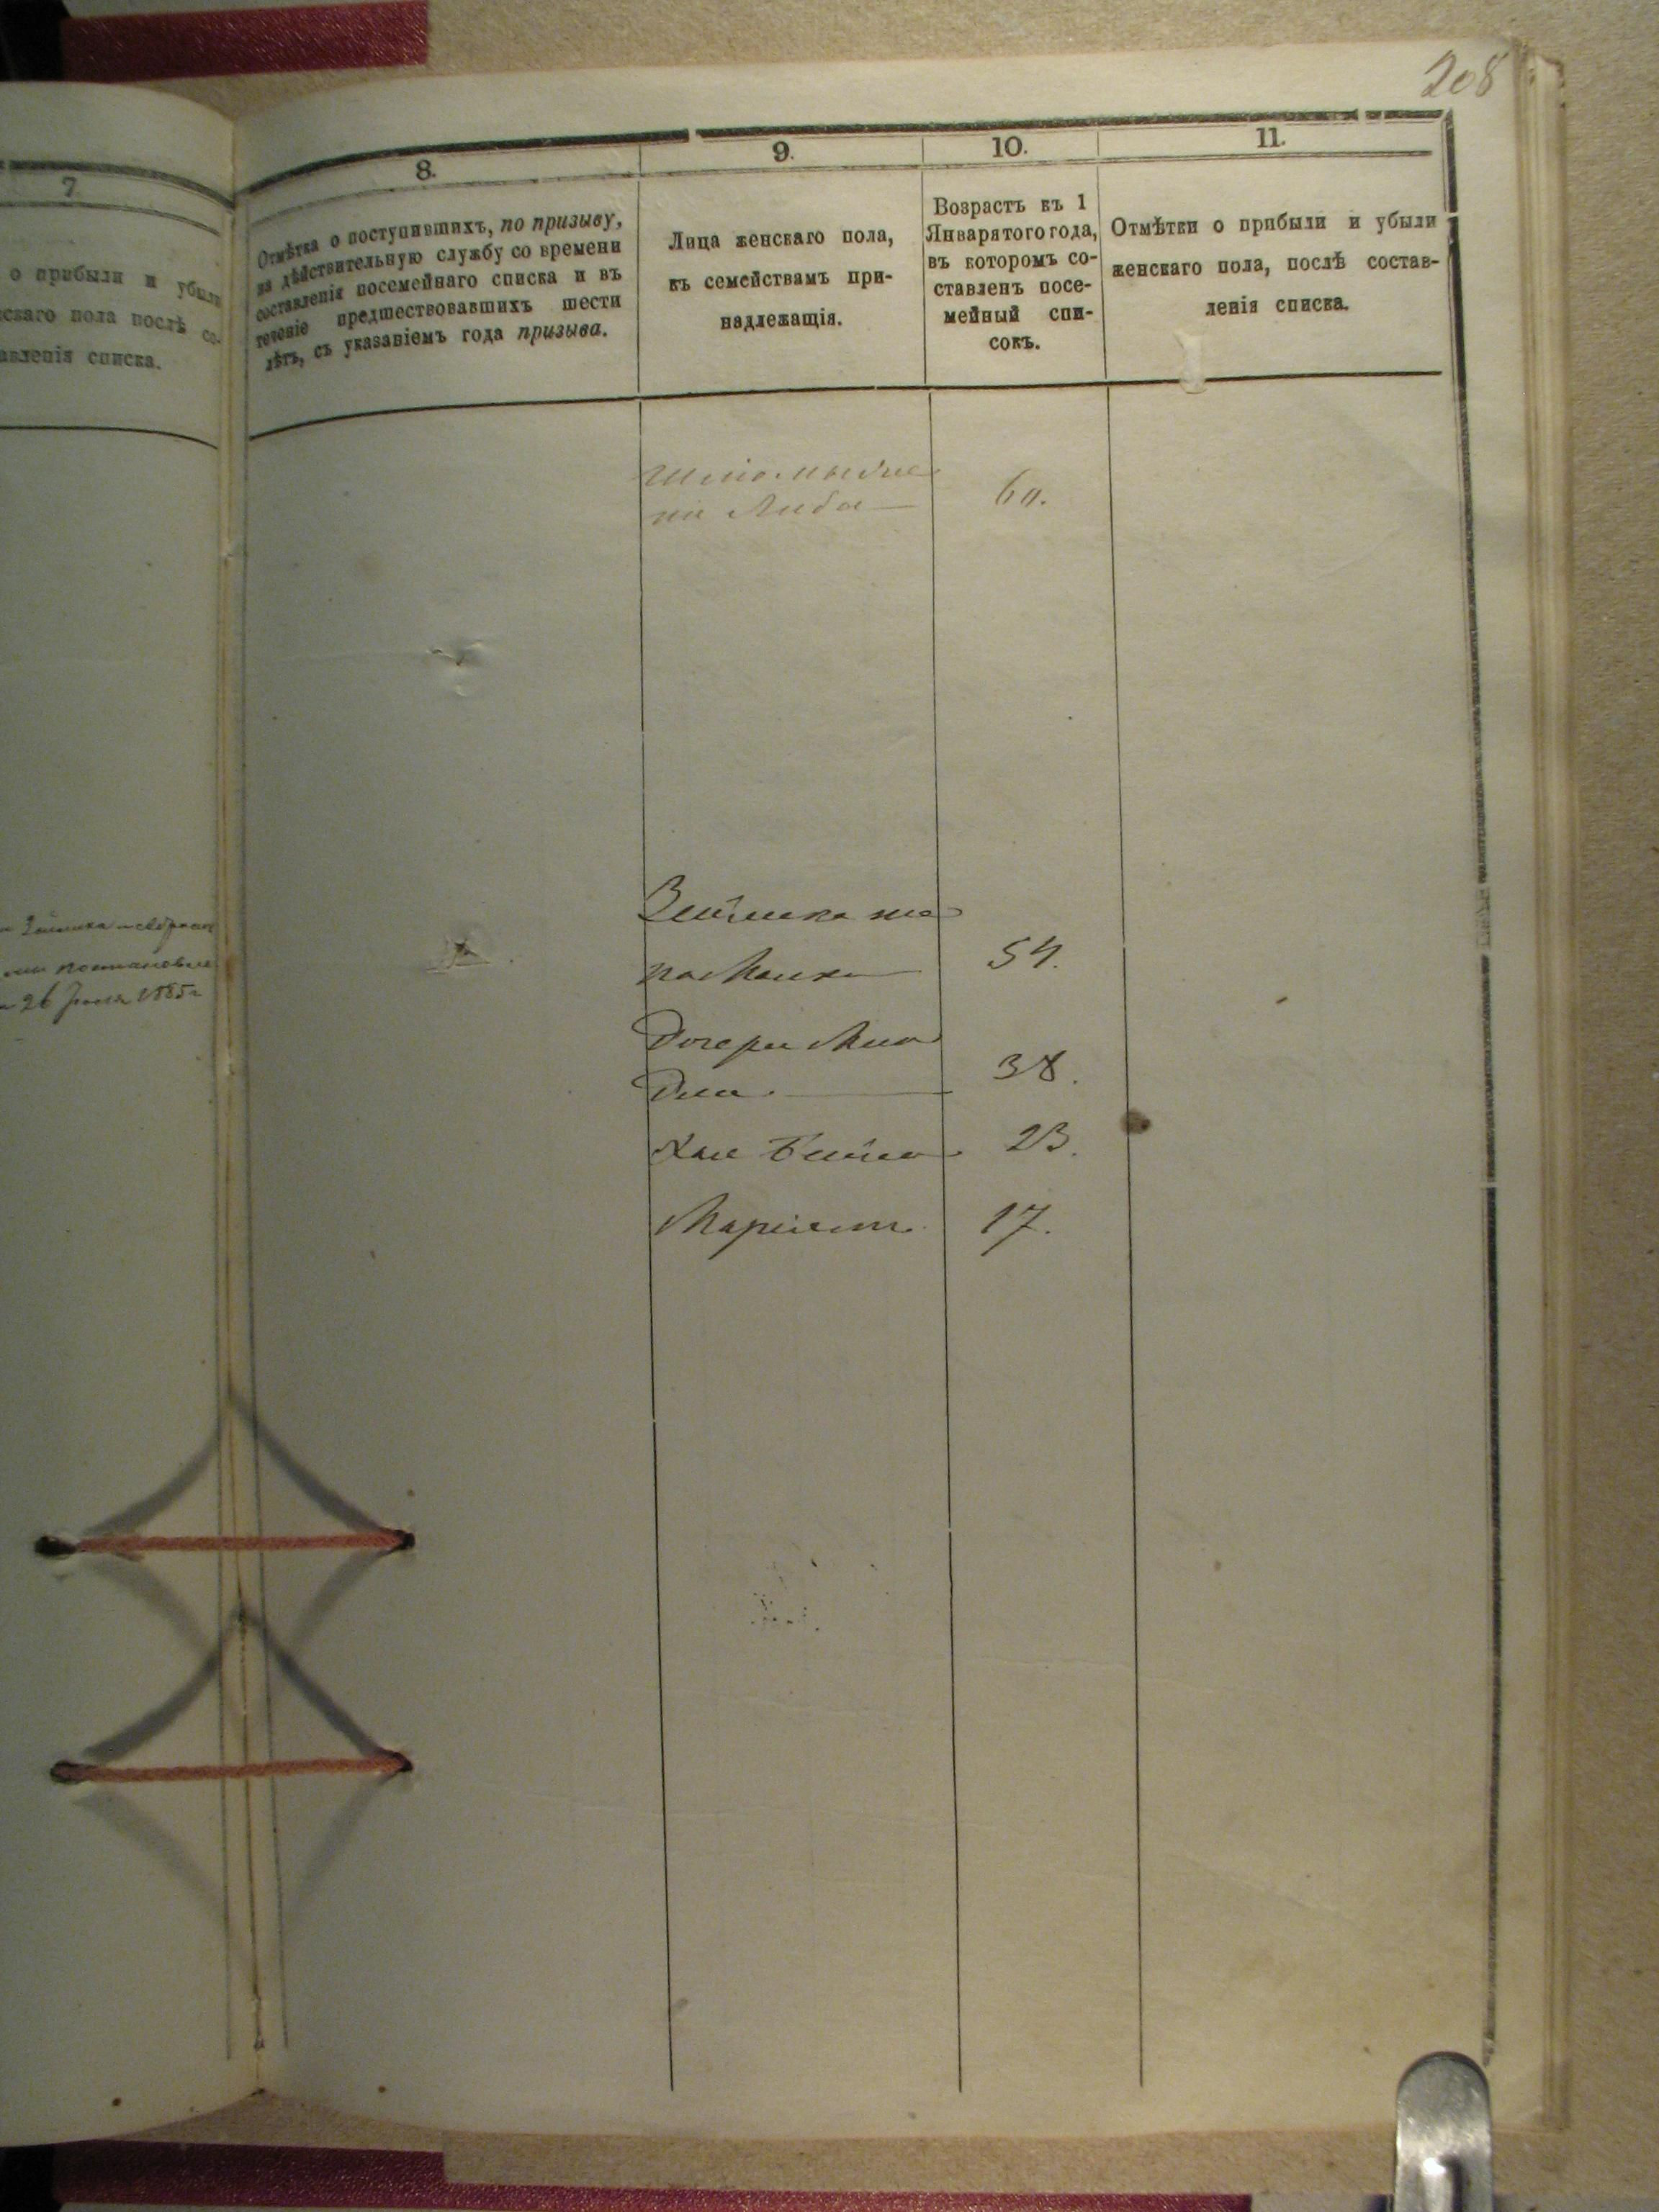 208
7
о прибыли и убыли
скаго пола послѣ со-
авленія списка.
постановле
26 Іюля 1885 г
8.
Отмѣтка о поступившихъ, по призыву,
на дѣйствительную службу со времени
составленія посемейнаго списка и въ
теченіе предшествовавшихъ шести
лѣтъ, съ указаніемъ года призыва.
9.
Лица женскаго пола,
къ семействамъ при-
надлежащія.
10.
Возрастъ къ 1
Января того года,
въ которомъ со-
ставленъ посе-
мейный спи-
сокъ.
11.
Отмѣтки о прибыли и убыли
женскаго пола, послѣ состав-
ленія списка.
Либа
60.
Зейлика же
на Малка
54.
Дочери Мин
для
38.
Хае Бейла
23.
Маріаш
17.